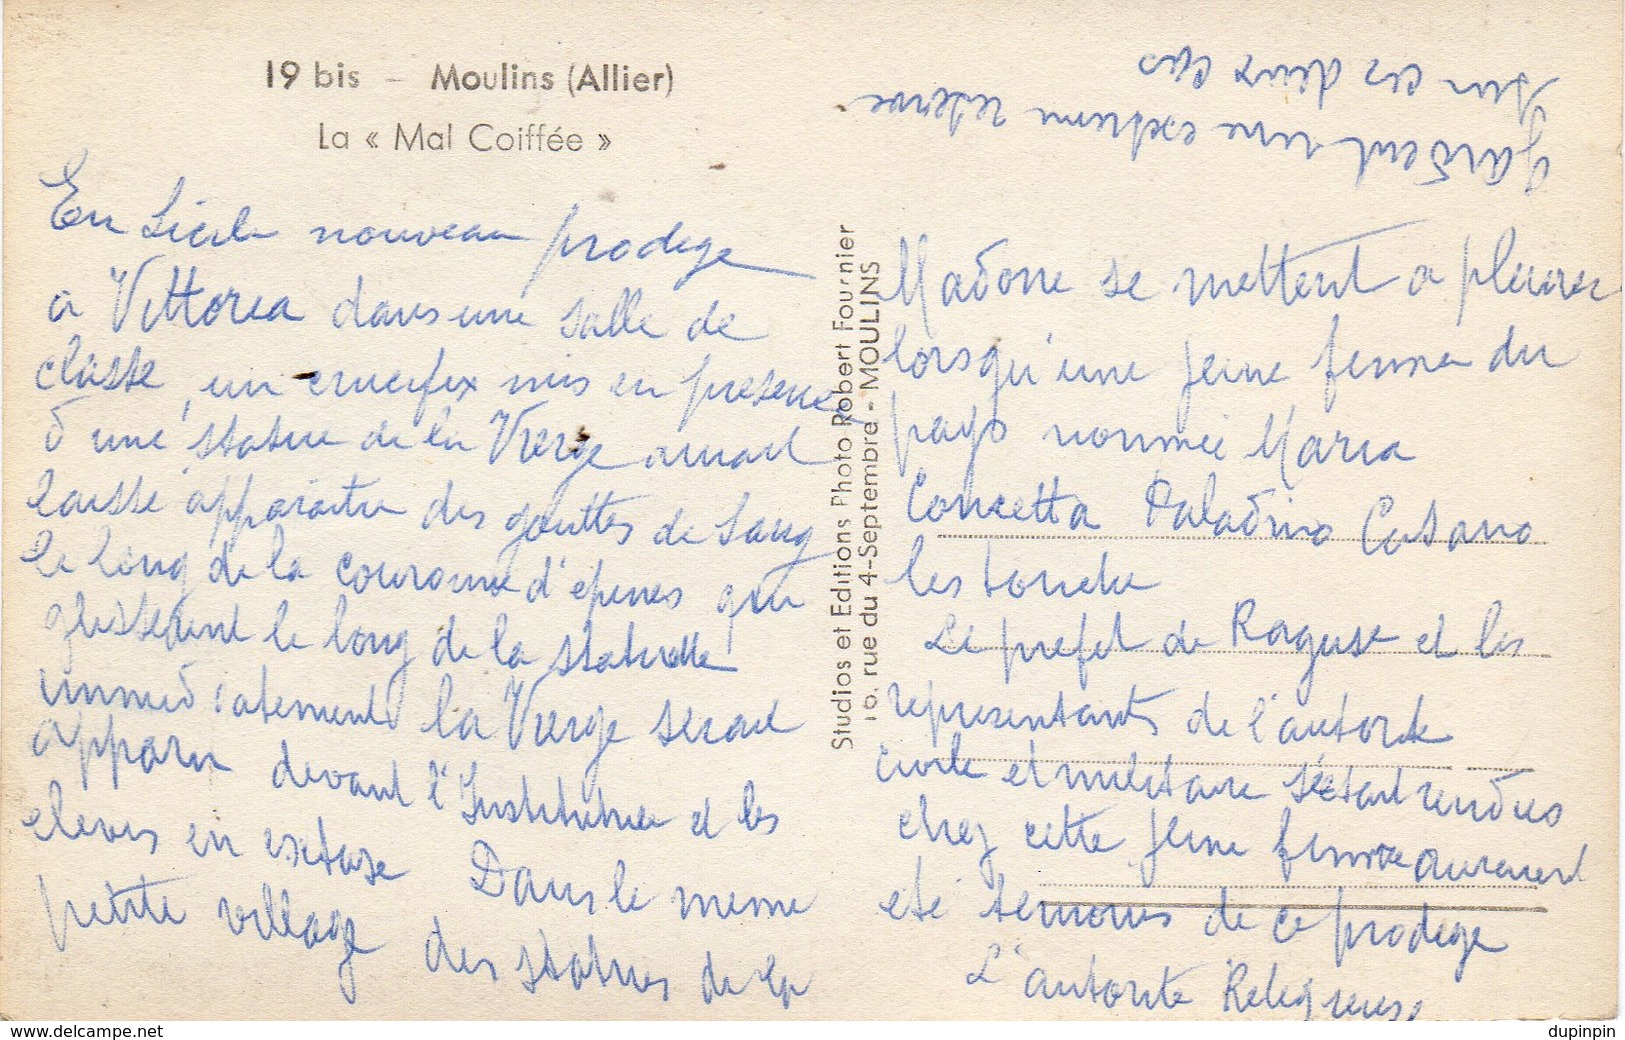 19 bis – Moulins (Allier)
La « Mal Coiffée »
En Sicile nouveau prodege
a Vittoria dans une salle de
classe, un crucifix mis en presence
d'une statue de la Vierge aurait
laissé apparaitre des gouttes de Sang
le long de la couronne d'epines qui
glisserent le long de la statuette
immediatement la Vierge serait
apparu devant l'Institutrice et les
eleves en extase Dans le meme
petite village des statues de la
Studios et Editions Photo Robert Fournier
10, rue du 4-Septembre - MOULINS
Madone se mettent a pleurer
lorsqu'une jeune femme du
pays nommée Maria
Concetta Paladino Casano
les touche
Le prefet de Raguse et les
representants de l'autorite
civile et militaire s'etant rendus
chez cette jeune femme auraient
eté temoins de ce prodege
L'autorite Religieuse
gardent une expresse reserve
sur ces deux cas
www.delcampe.net
dupinpin